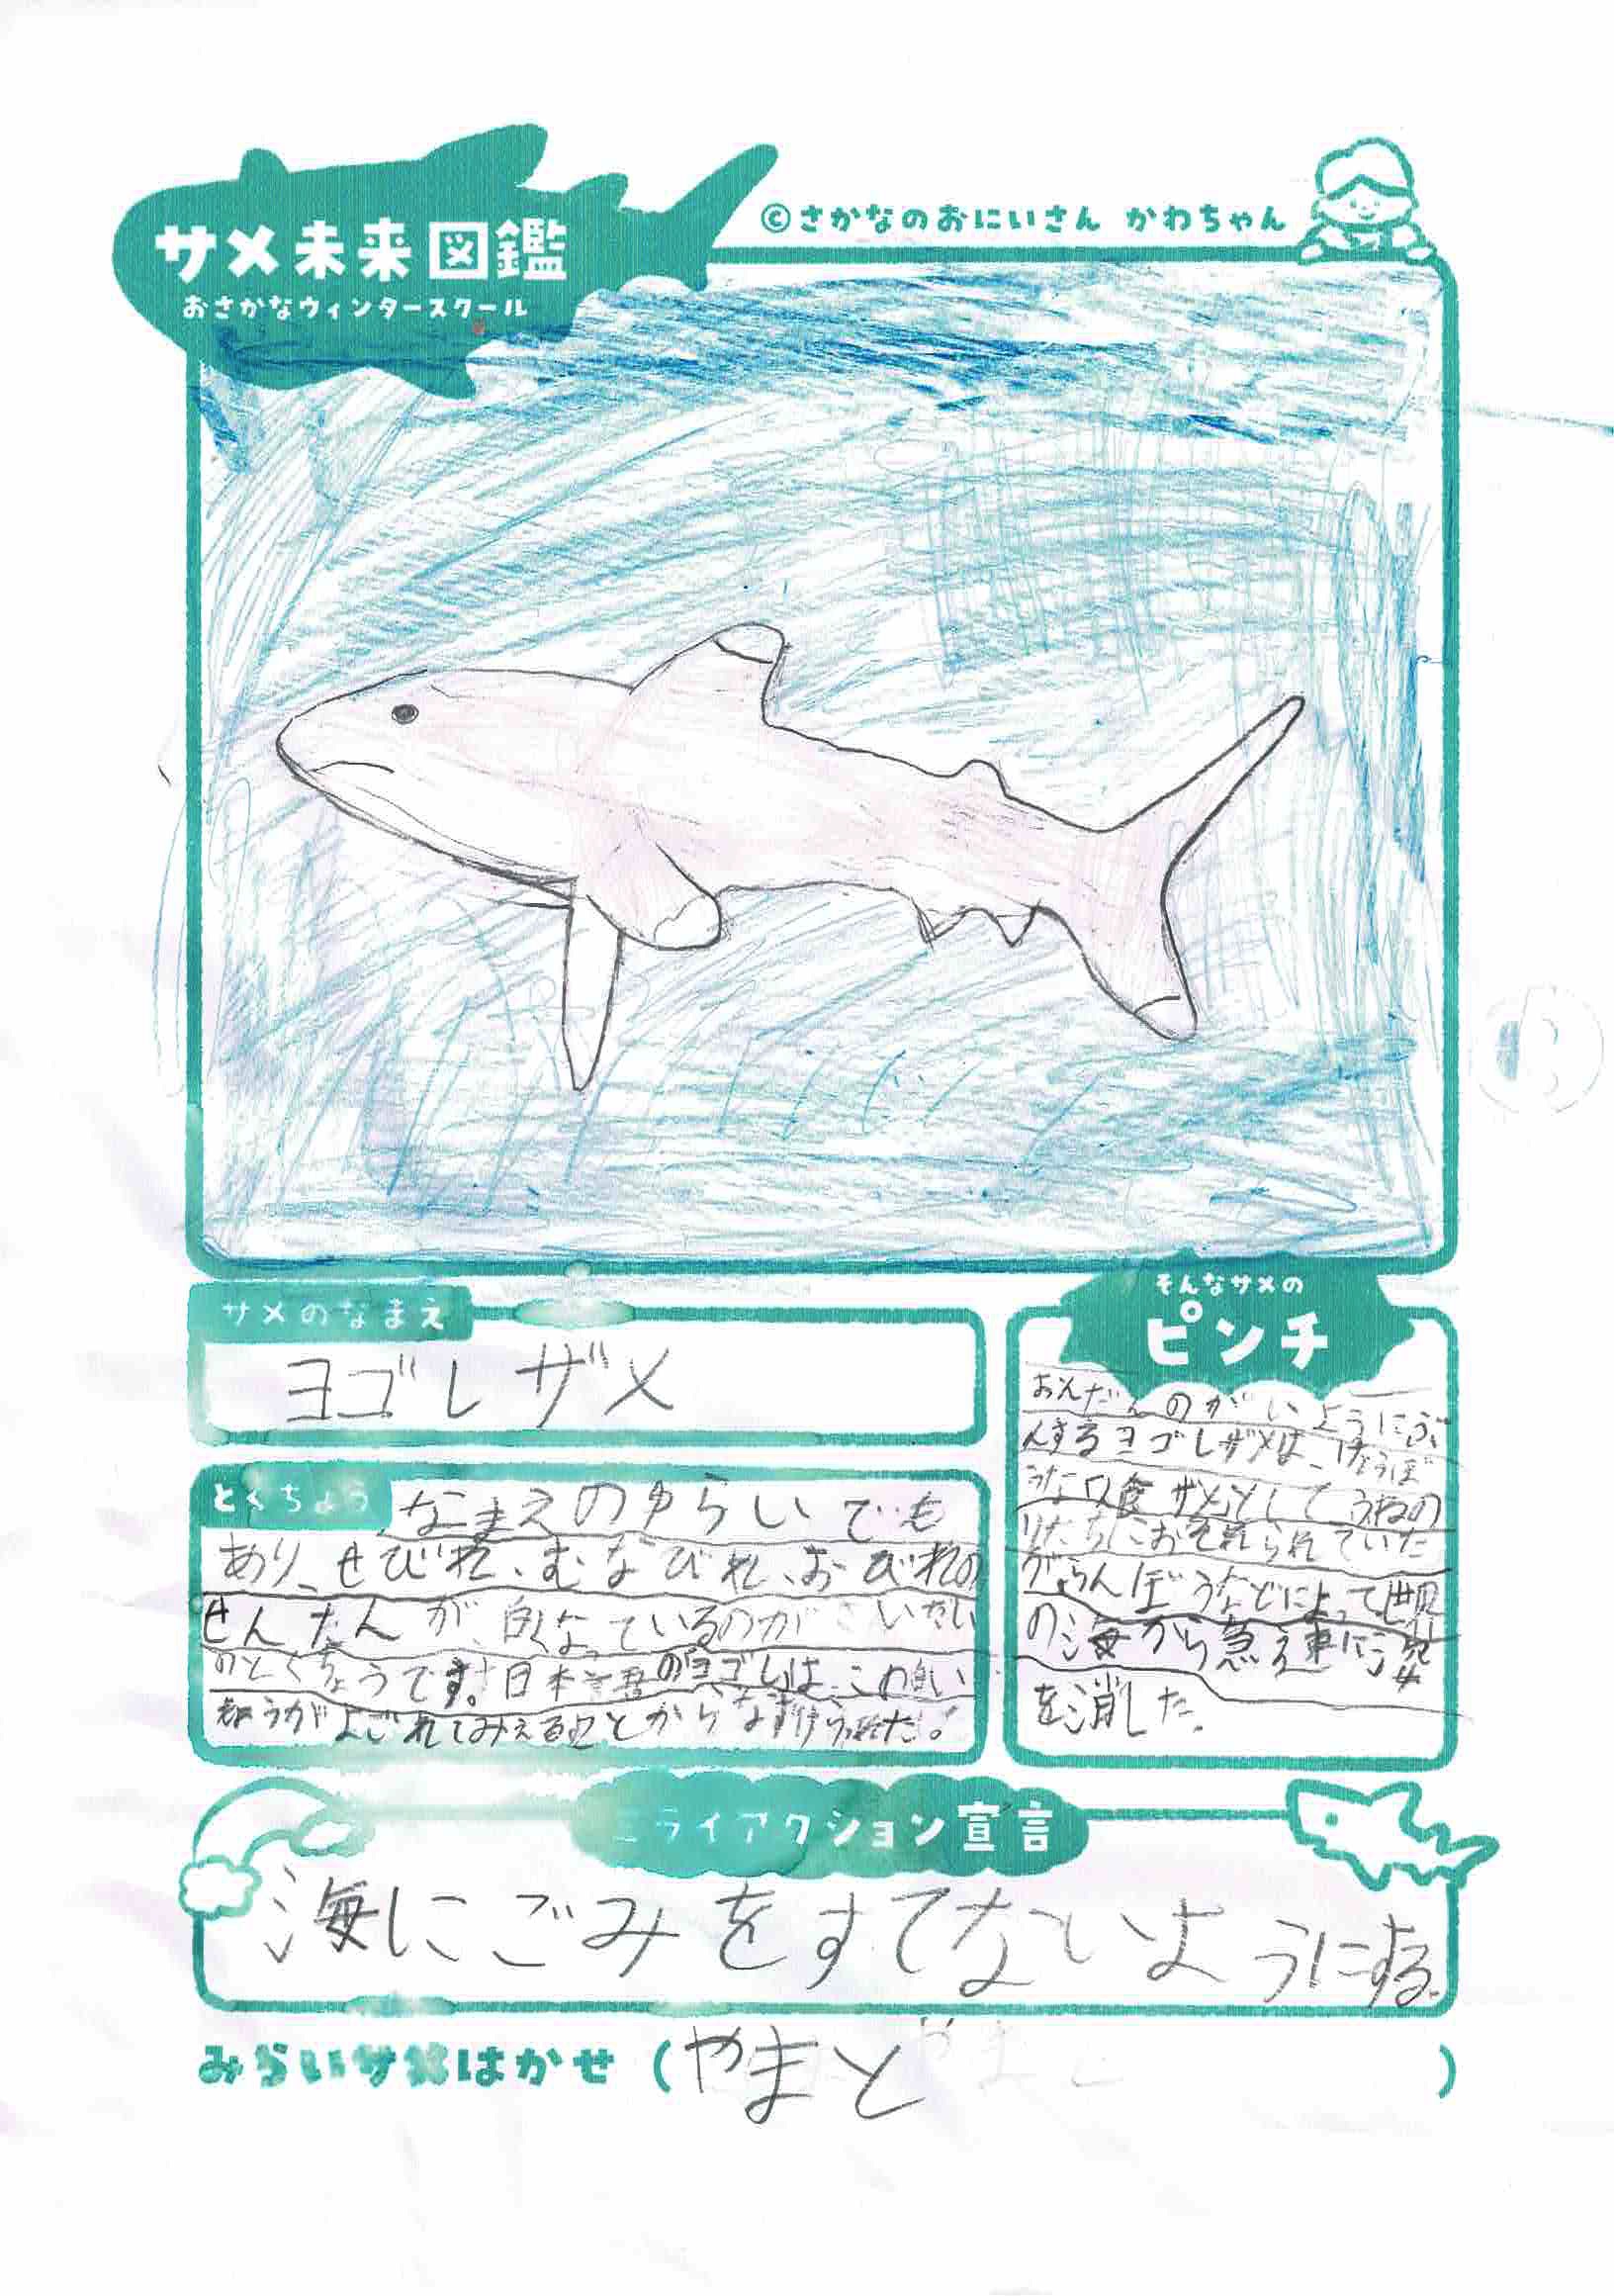 サメ未来図鑑
おさかなウィンタースクール
©さかなのおにいさん かわちゃん
サメのなまえ
ヨゴレザメ
とくちょう
なまえのゆらいでも
あり、せびれ、むなびれ、おびれの
せんたんが白くなっているのがさいだい
のとくちょうです。日本語のヨゴレは、この白い
もうがよごれてみえることからなずけられた。
そんなサメの
ピンチ
おんだんのがいようにぶ
んするヨゴレザメは、
人食ザメとして
たちにおそれられていた
がらんぼうなどによって世界
の海から急速に姿
を消した。
ミライアクション宣言
海にごみをすてないようにする。
みらいサメはかせ (やまと)